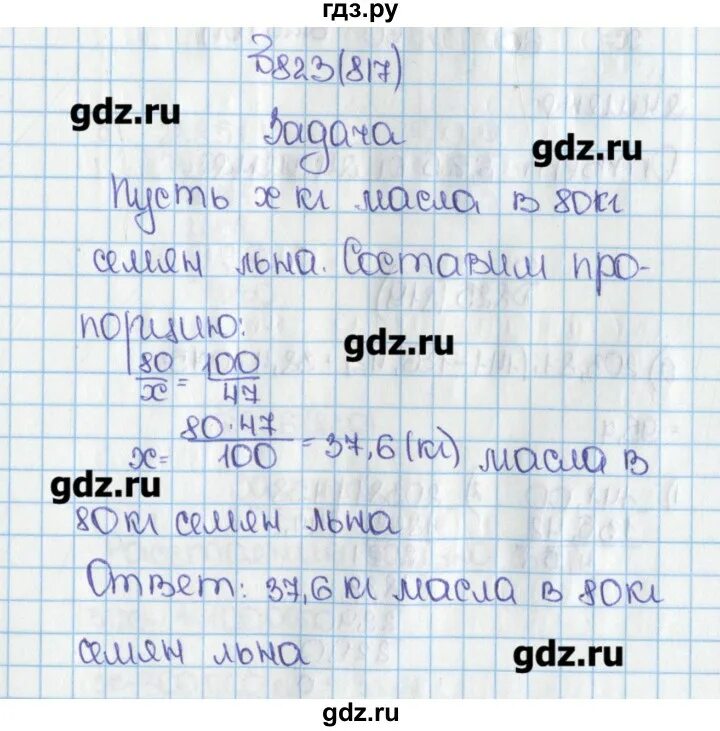 гдз.ру
823(817)
gdz.ru
Задача
gdz.ru
Пусть x кг масла в 80 кг
семян льна. Составим про-
порцию:
gdz.ru
80/x = 100/47
x = 80·47/100 = 37,6 (кг) масла в
gdz.ru
80 кг семян льна
Ответ: 37,6 кг масла в 80 кг
семян льна
gdz.ru
gdz.ru